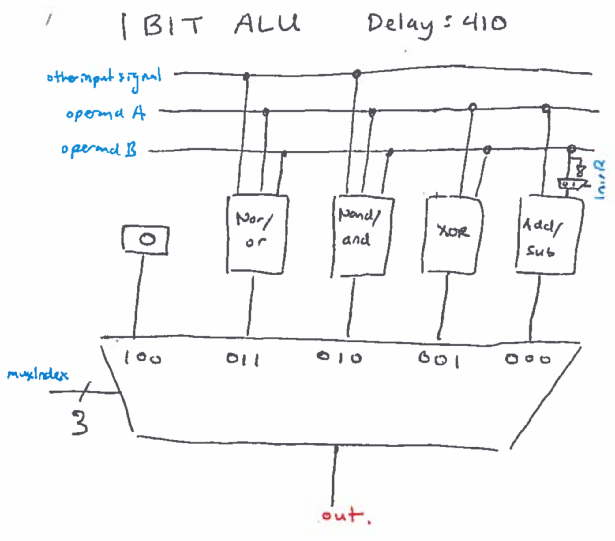 1 BIT ALU Delay: 410
other input signal
operand A
operand B
0
Nor/
or
Nand/
and
XOR
Add/
Sub
0 1
100 011 010 001 000
muxIndex
3
out.